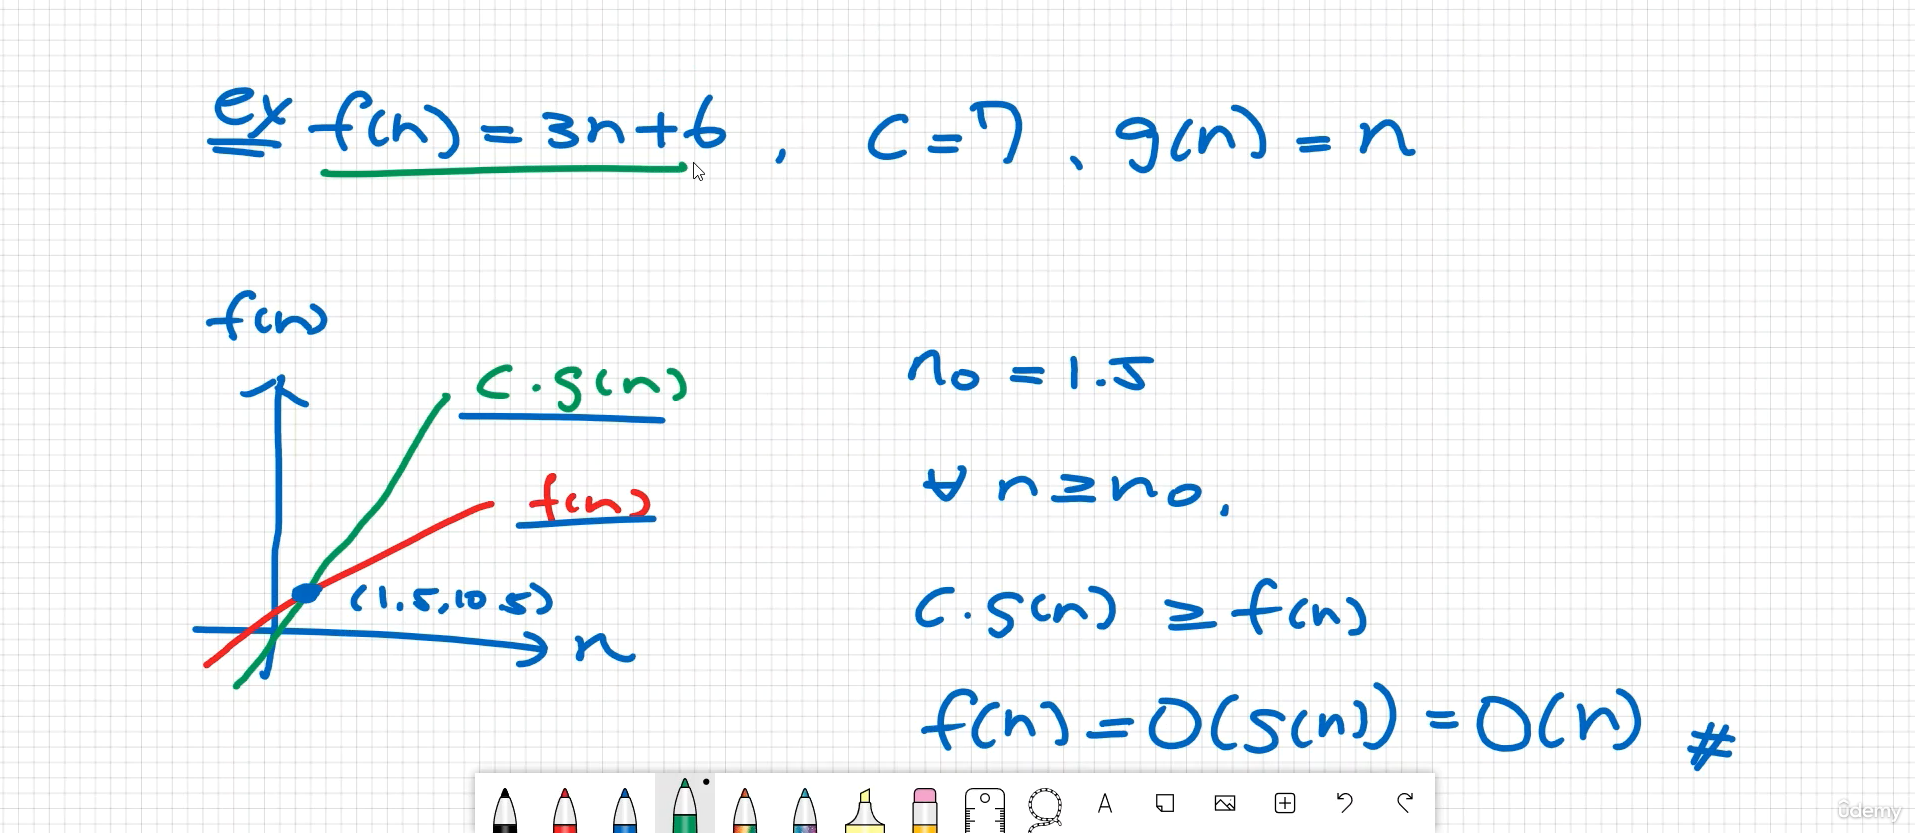 ex f(n) = 3n+6 , C = 7 、 g(n) = n
f(n)
C · g(n)
f(n)
(1.5, 10.5)
n
n₀ = 1.5
∀ n ≥ n₀ ,
C · g(n) ≥ f(n)
f(n) = O(g(n)) = O(n) #
A
ûdemy